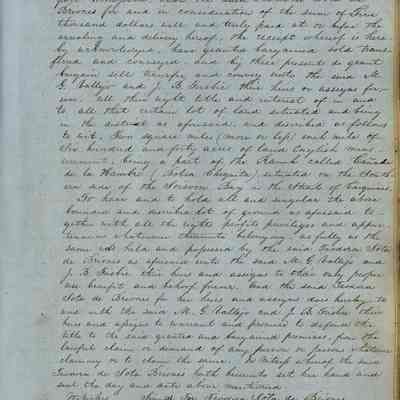 Briones for and in consideration of the sum of Five
thousand dollars well and truly paid at or before the
ensealing and delivery hereof, the receipt whereof is here
by acknowledged, have granted bargained sold trans
ferred and conveyed, and by these presents do grant
bargain sell transfer and convey unto the said M.
G. Vallejo and J. B. Frisbie their heirs or assigns for
ever. all their right title and interest of in and
to all that certain lot of land situated and being
in the district as aforesaid, and described as follows
to wit. Two square miles (more or less) each mile of
Six hundred and forty acres of land English meas
urement, being a part of the Ranch called Cañada
de la Hambre (Bolsa Chiquita) situated on the South
ern side of the Bay in the Strait of Carquines.
To have and to hold all and singular the above
bounded and described lot of ground as aforesaid to
gether with all the rights profits privileges and appur
tenances whatever thereunto belonging as fully as the
same is held and possessed by the said Teodora Soto
de Briones as aforesaid unto the said M. G. Vallejo and
J. B. Frisbie their heirs and assigns to their only proper
use benefit and behoof forever. And the said Teodora
Soto de Briones for her heirs and assigns does hereby to
and with the said M. G. Vallejo and J. B. Frisbie their
heirs and assigns to warrant and promise to defend the
title to the said granted and bargained premises, from the
lawful claim or demand of any person or persons whatever
claiming or to claim the same. In witness whereof the said
Teodora de Soto Briones hath hereunto set her hand and
seal the day and date above mentioned.
Witnesses Signed for Teodora Soto de Briones